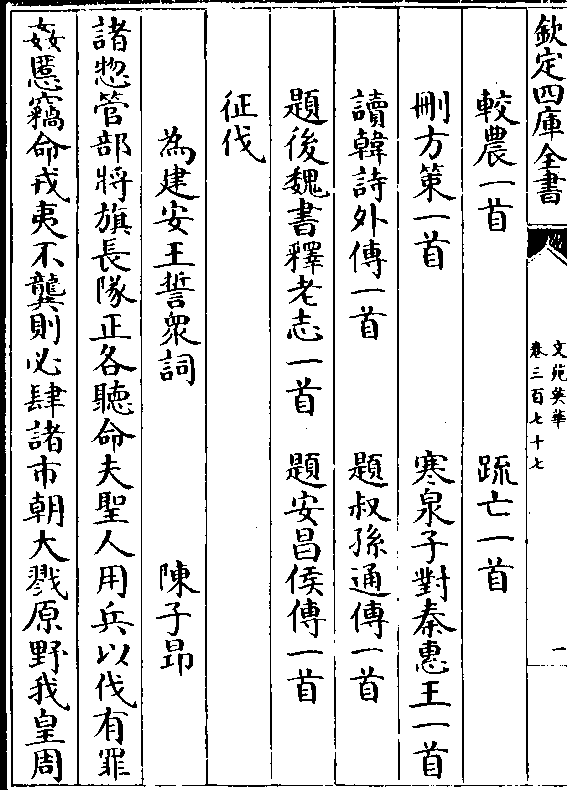 欽定四庫全書
文苑英華
卷三百七十七
一
較農一首 䟽亡一首
刪方策一首 寒泉子對秦惠王一首
讀韓詩外傳一首 題叔孫通傳一首
題後魏書釋老志一首 題安昌侯傳一首
征伐
為建安王誓衆詞 陳子昂
諸惣管部將旗長隊正各聽命夫聖人用兵以伐有罪
姦慝竊命戎夷不龔則必肆諸市朝大戮原野我皇周